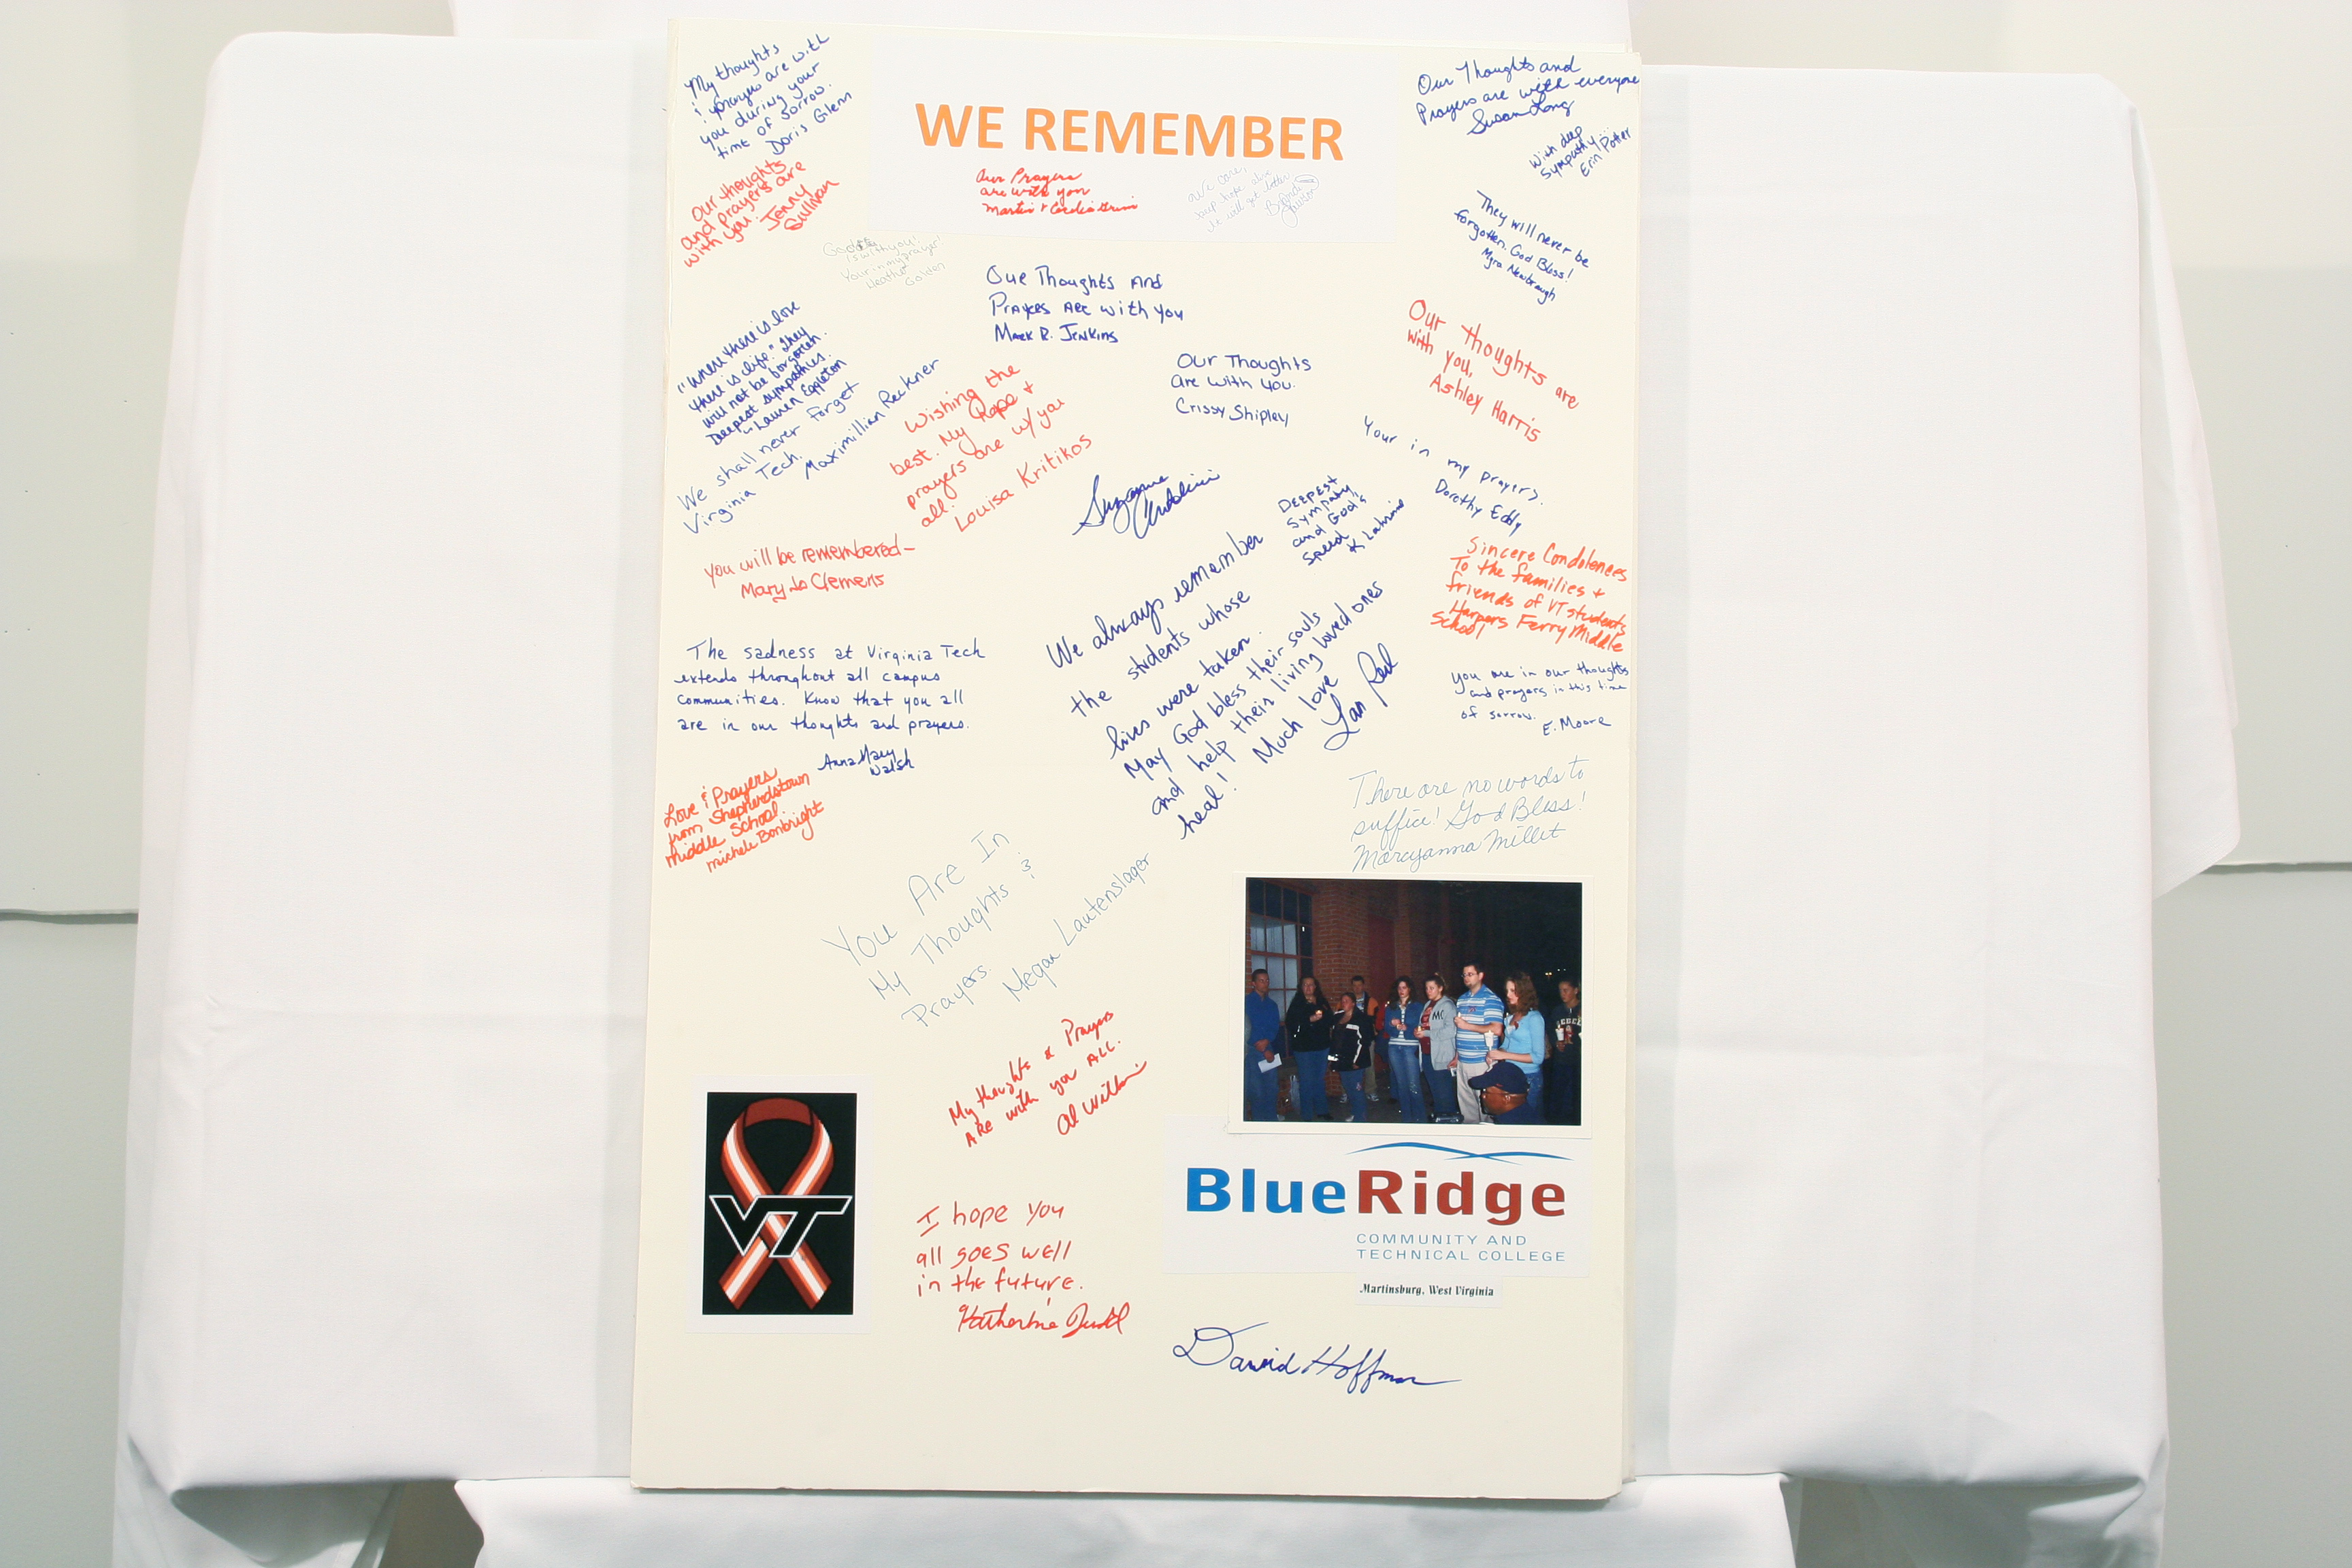 WE REMEMBER
My thoughts
& prayers are with
you during your
time of sorrow.
Doris Glenn
Our thoughts
and prayers are
with you. Jenny
Sullivan
Our Prayers
are with you
Martin +
We care,
keep hope alive
it will get better
Our Thoughts and
Prayers are with everyone
Susan Long
With deep
sympathy...
Erin Potter
They will never be
forgotten. God Bless!
Myra Newbraugh
God
is with you!
Your in my prayer
Heather
Golden
Our Thoughts And
Prayers Are with you
Mark R. Jenkins
"Where there is love
there is life." They
will not be forgotten.
Deepest sympathies.
~ Lauren Eggleton
Our Thoughts
are with you.
Crissy Shipley
Our Thoughts are
with you,
Ashley Harris
We shall never forget
Virginia Tech.
Maximillian Reckner
Wishing the
best. My Hope +
prayers are w/ you
all.
Louisa Kritikos
Your in my prayers.
Dorothy Eddy
Suzanne
Deepest
Sympathy
and God's
Speed
K
you will be remembered-
Mary Jo Clemens
Sincere Condolences
To the families +
friends of VT students
Harpers Ferry Middle
School
We always remember
the students whose
lives were taken.
May God bless their souls
and help their living loved ones
heal! Much love
The sadness at Virginia Tech
extends throughout all campus
communities. Know that you all
are in our thoughts and prayers.
Anna Mary
Walsh
you are in our thoughts
and prayers in this time
of sorrow.
E. Moore
Love & Prayers
from Shepherdstown
Middle School.
Michele Bonbright
There are no words to
suffice! God Bless!
Marcyanna Millet
You Are In
My Thoughts &
Prayers
Megan Lautenslager
My thoughts & Prayers
ARE with you ALL.
Al
VT
BlueRidge
COMMUNITY AND
TECHNICAL COLLEGE
Martinsburg, West Virginia
I hope you
all goes well
in the future.
Katherine
David Hoffman